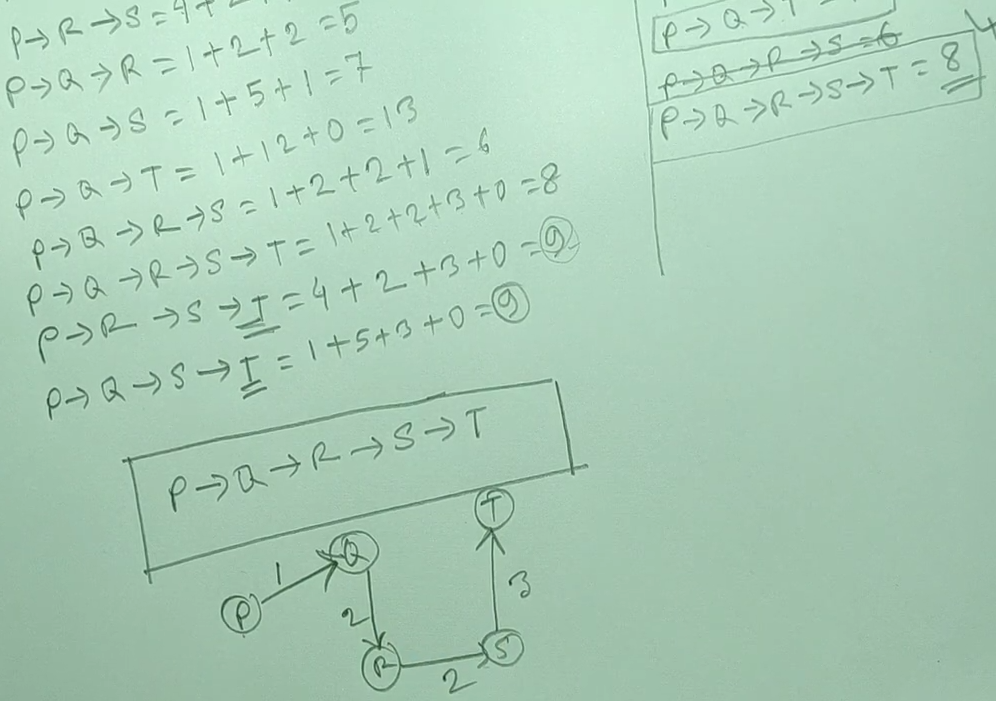 P→R→S=4+
P→Q→R=1+2+2=5
P→Q→S=1+5+1=7
P→Q→T=1+12+0=13
P→Q→R→S=1+2+2+1=6
P→Q→R→S→T=1+2+2+3+0=8
P→R→S→T=4+2+3+0=9
P→Q→S→T=1+5+3+0=9
P→Q→T
P→Q→R→S=6
P→Q→R→S→T=8
P→Q→R→S→T
T
Q
1
P
2
3
R
S
2